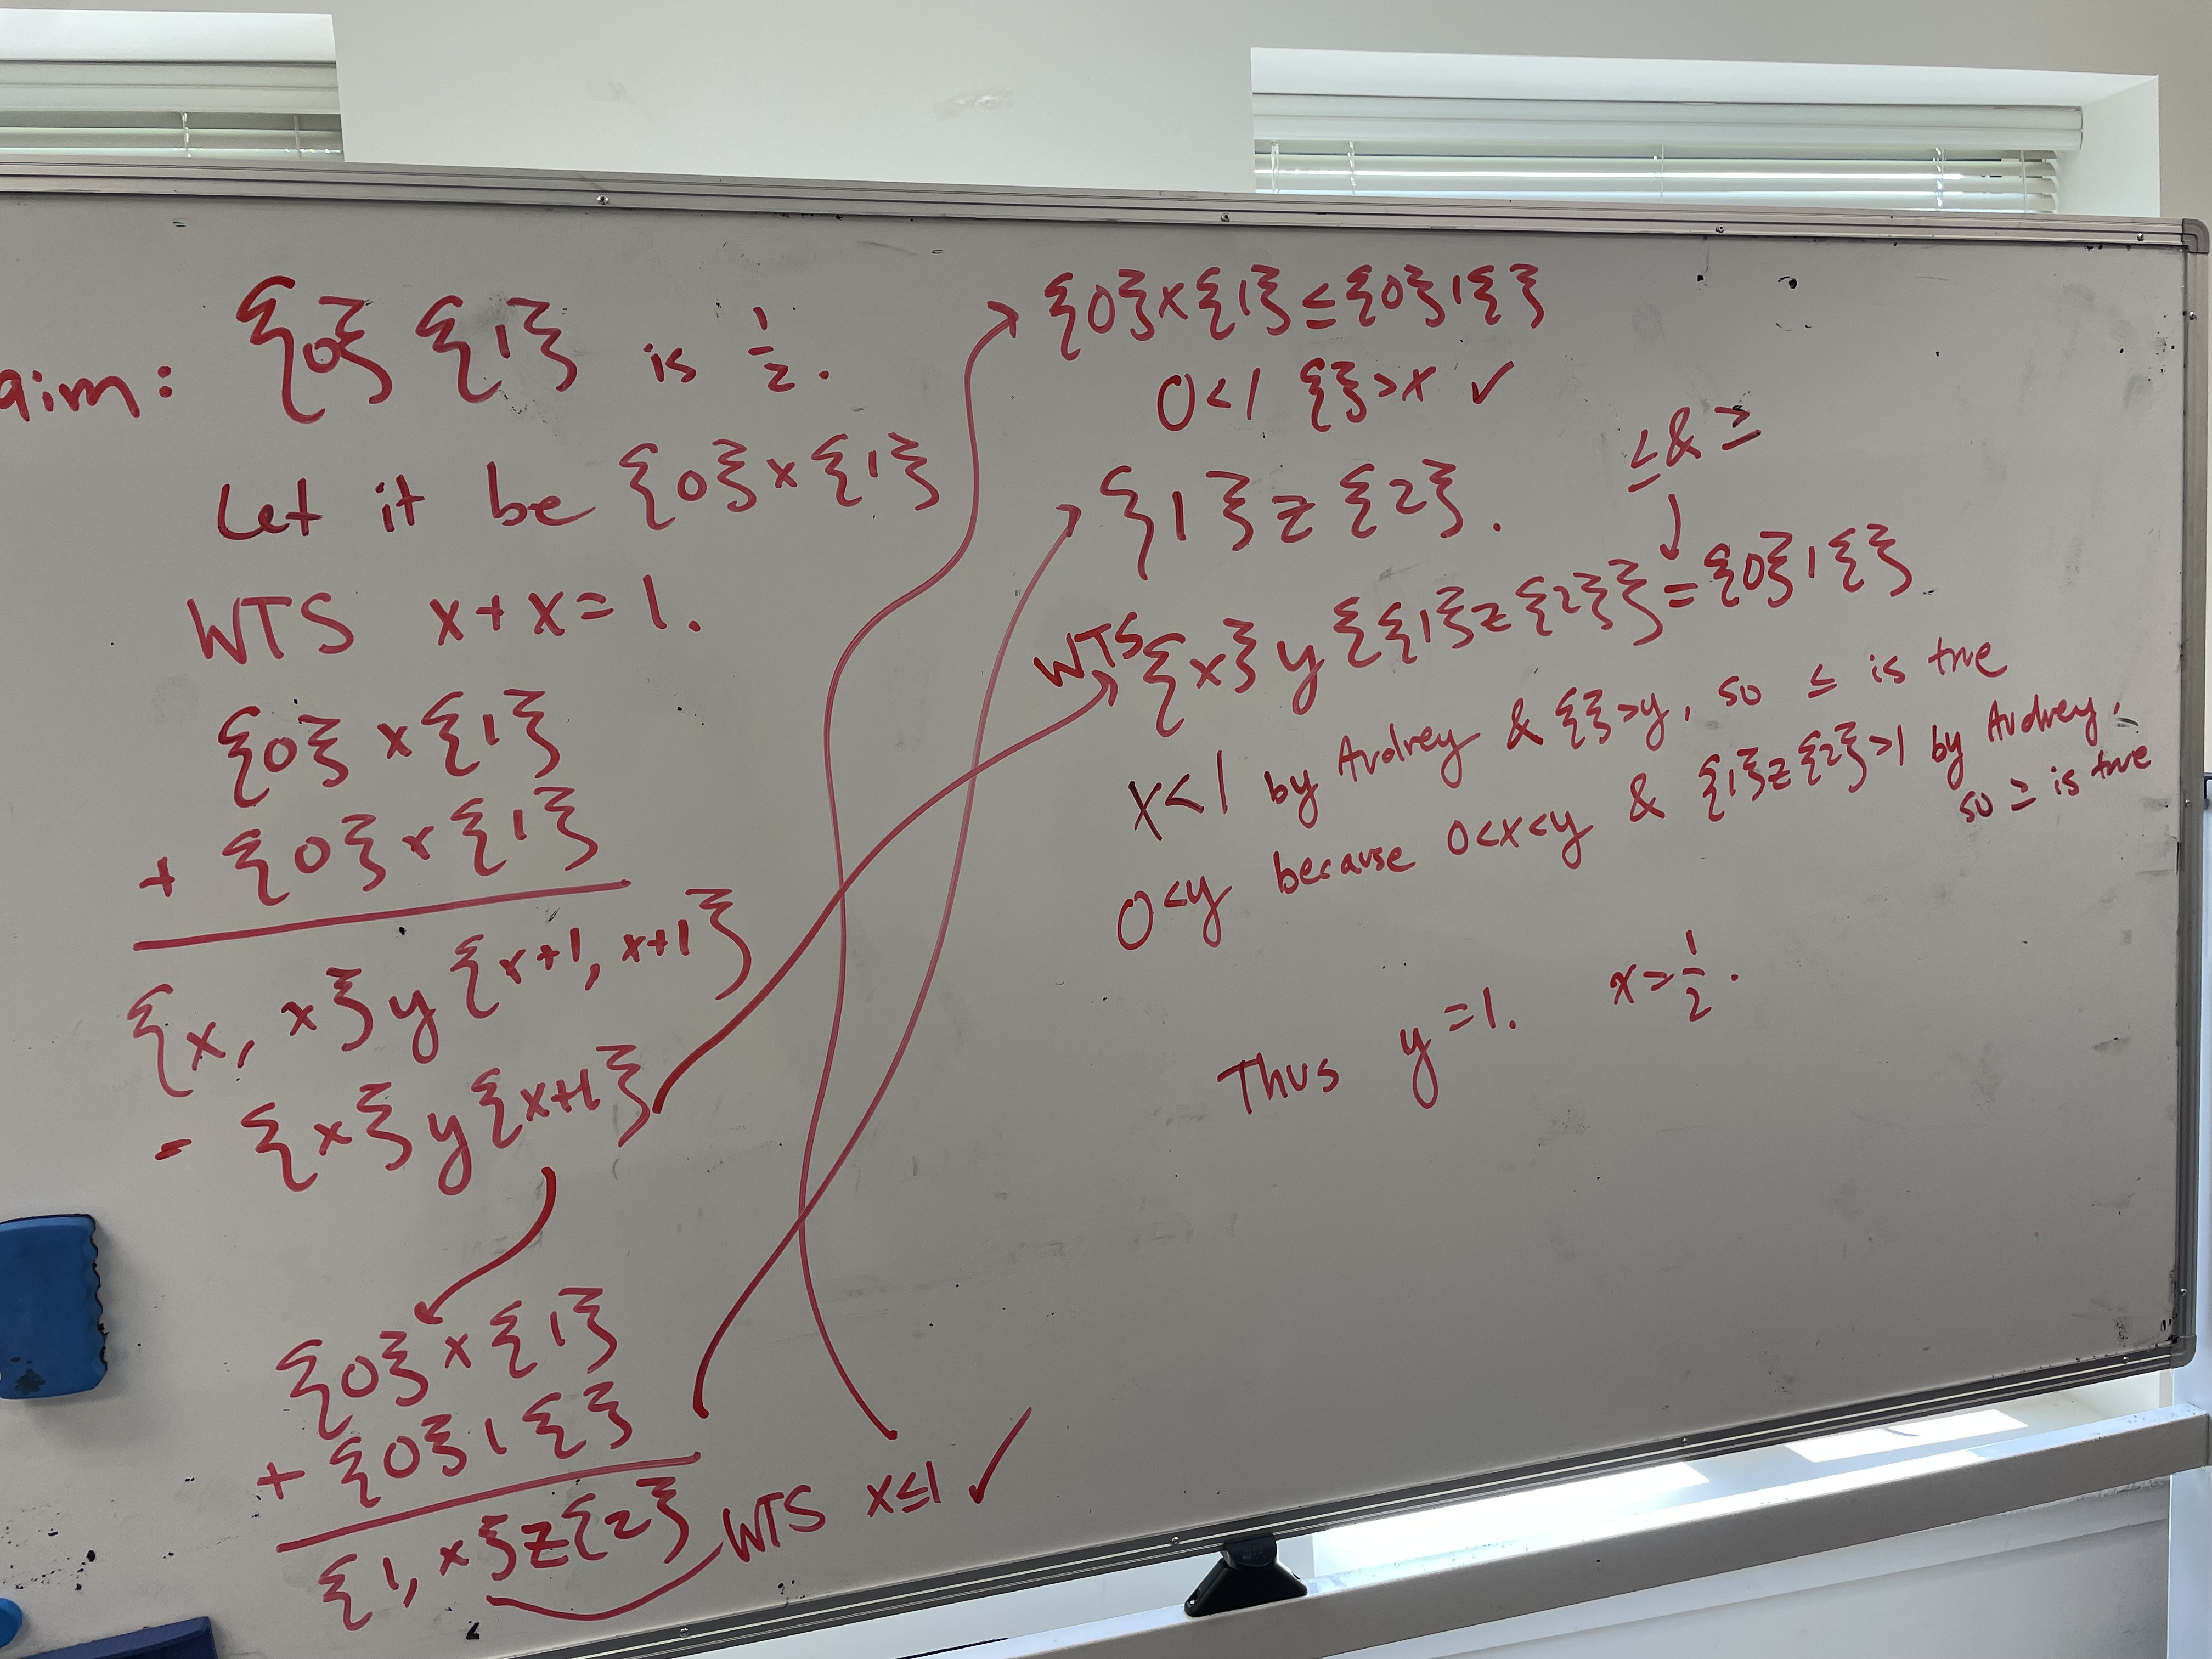 aim: {0} {1} is 1/2.
Let it be {0} x {1}
WTS x + x = 1.
{0} x {1}
+ {0} x {1}
{x, x} y {x+1, x+1}
= {x} y {x+1}
{0} x {1}
+ {0} 1 { }
{1, x} z {2}
WTS x ≤ 1 ✓
{0} x {1} ≤ {0} 1 { }
0 < 1 { } > x ✓
{1} z {2}.
≤ & ≥
WTS {x} y {{1} z {2}} = {0} 1 { }
x < 1 by Audrey & { } > y, so ≤ is true
0 < y because 0 < x < y & {1} z {2} > 1 by Audrey,
so ≥ is true
Thus y = 1. x = 1/2.